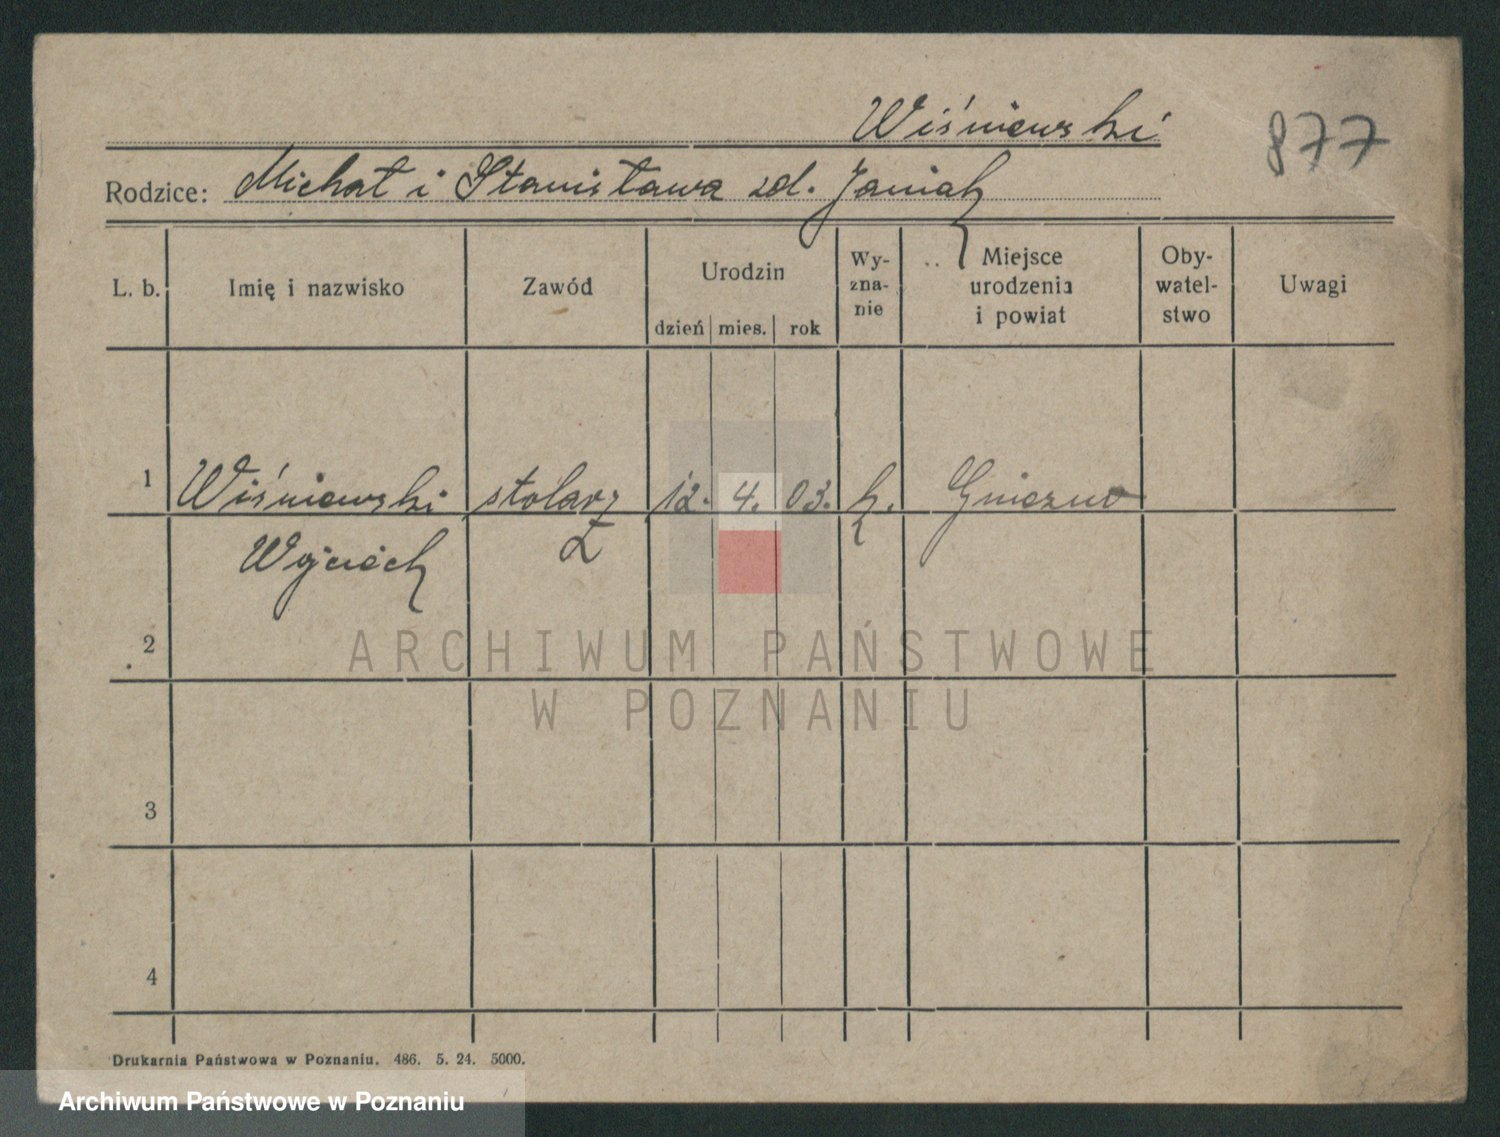 Wiśniewski
877
Rodzice: Michał i Stanisława zd. Janiak
L. b. Imię i nazwisko Zawód Urodzin dzień mies. rok Wy-zna-nie Miejsce urodzenia i powiat Oby-watel-stwo Uwagi
1 Wiśniewski stolarz 12. 4. 03. k. Gniezno
Wojciech
2
ARCHIWUM PAŃSTWOWE
W POZNANIU
3
4
Drukarnia Państwowa w Poznaniu. 486. 5. 24. 5000.
Archiwum Państwowe w Poznaniu